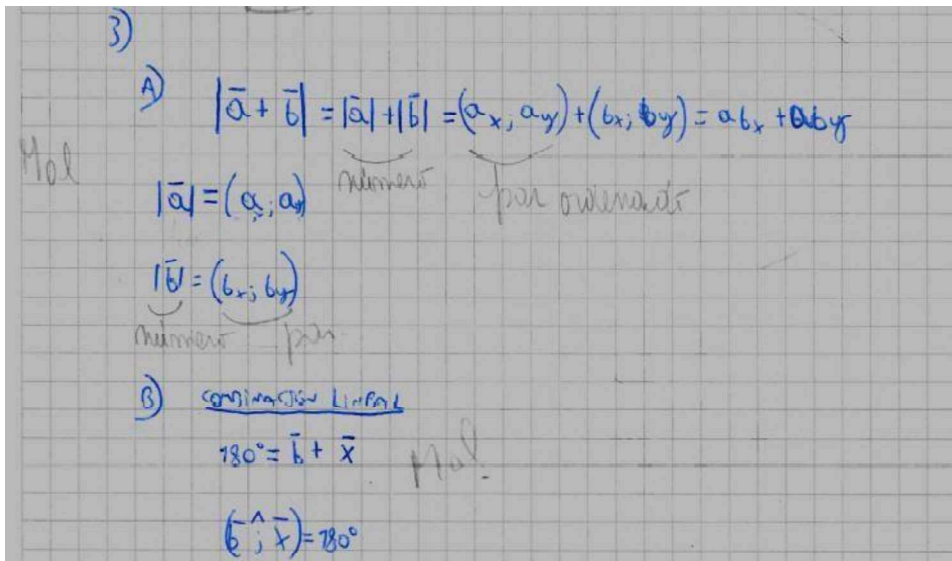 3)
A) |ā + b̄| = |ā| + |b̄| = (ax; ay) + (bx; by) = abx + aby
número par ordenado
Mal
|ā| = (a; a)
|b̄| = (bx; by)
número par
B) COMBINACIÓN LINEAL
180° = b̄ + x̄ Mal
(b̄ ^; x̄) = 180°